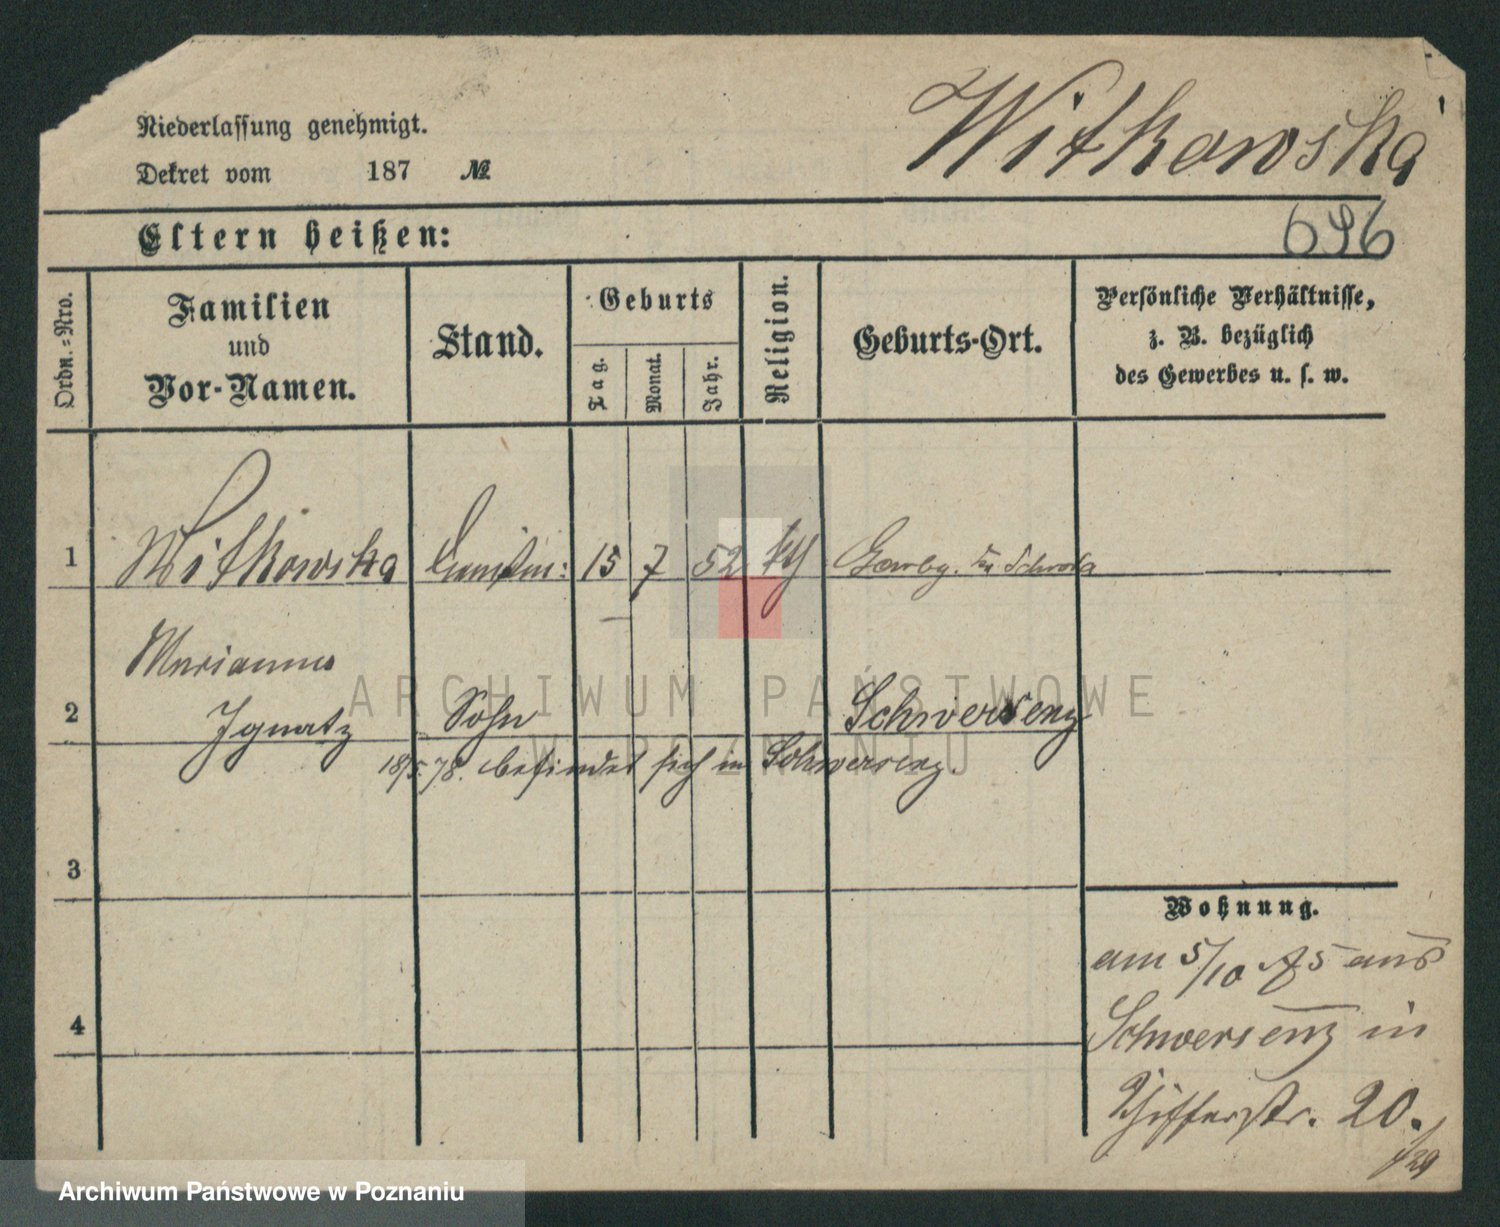 Niederlassung genehmigt.
Witkowska
Dekret vom 187 №
Eltern heißen:
696
Ordn.-Nro.
Familien
und
Vor-Namen.
Stand.
Geburts
Tag.
Monat.
Jahr.
Religion.
Geburts-Ort.
Persönliche Verhältnisse,
z. B. bezüglich
des Gewerbes u. s. w.
1 Witkowska 15 7 52 Schroda
Marianna
2 Ignatz Sohn Schwersenz
18/5.78. befindet sich in Schwersenz.
3
Wohnung.
am 5/10 75 aus
Schwersenz in
Schifferstr. 20.
4
ARCHIWUM PAŃSTWOWE
W POZNANIU
Archiwum Państwowe w Poznaniu